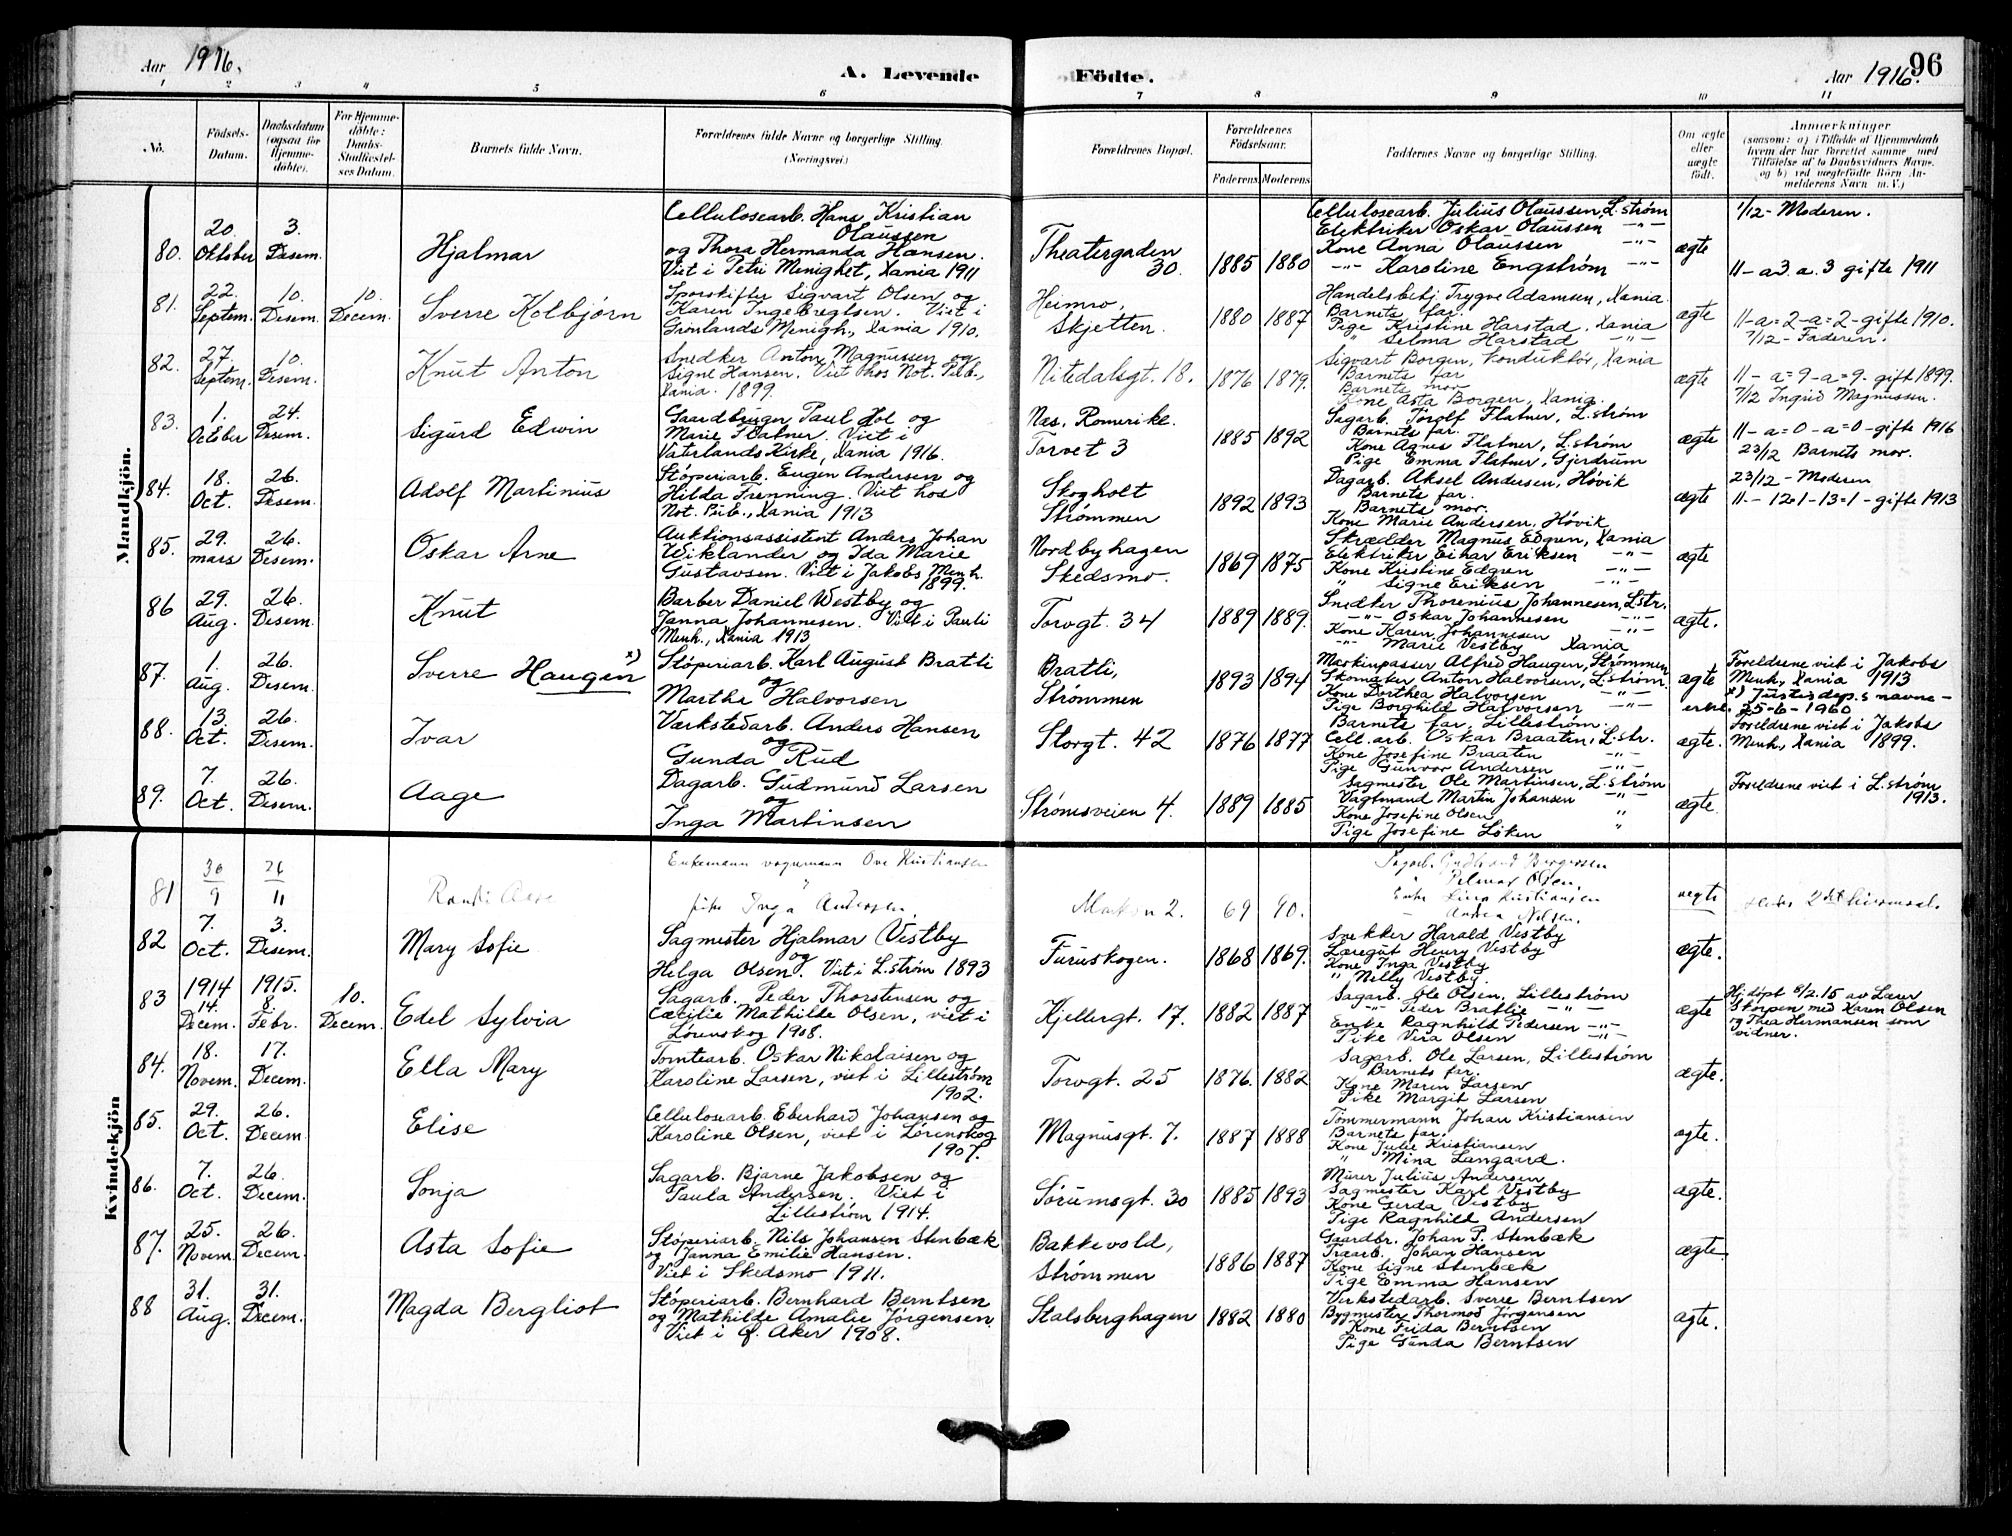 Aar 1916.
A. Levende
Födte.
Aar 1916.
96
1 2 3 4 5 6 7 8 9 10 11
No.
Födsels-
Datum.
Daabsdatum
(ogsaa for
Hjemme-
döbte).
For Hjemme-
döbte:
Daabs-
Stadfæstel-
ses Datum.
Barnets fulde Navn.
Forældrenes fulde Navne og borgerlige Stilling.
(Næringsvei)
Forældrenes Bopæl.
Forældrenes
Födselsaar.
Faderens Moderens
Faddernes Navne og borgerlige Stilling.
Om ægte
eller
uægte
født.
Anmærkninger
(saasom: a) i Tilfælde af Hjemmedaab
hvem der har forrettet samme med
Tilföielse af to Daabsvidners Navne.
og b) ved uægtefödte Börn An-
melderens Navn m. V.)
Mandkjön.
80.
20.
Oktober
3.
Desem.
Hjalmar
Cellulosearb. Hans Kristian
Olaussen
og Thora Hermanda Hansen.
Viet i Petri Menighet, Xania 1911
Theatergaden
30.
1885 1880
Cellulosearb. Julius Olaussen, L.strøm
Elektriker Oskar Olaussen -"-
Kone Anna Olaussen -"-
-"- Karoline Engstrøm -"-
ægte
1/12 - Moderen.
11 - a3. a. 3 gifte 1911
81.
22.
Septem.
10.
Desem.
10.
Decem.
Sverre Kolbjørn
Sporskifter Sigvart Olsen og
Karen Ingebregtsen. Viet i
Grønlands Menigh., Xania 1910.
Heimro,
Skjetten.
1880 1887
Handelsbetj. Trygve Adamsen, Xania.
Barnets far.
Pige Kristine Harstad, Xania
" Selma Harstad -"-
ægte
11 - a = 2 - a = 2 - gifte 1910.
7/12 - Faderen.
82.
27.
Septem.
10.
Desem.
Knut Anton
Snedker Anton Magnussen og
Signe Hansen. Viet hos Not. Pub.,
Xania. 1899.
Nitedalsgt. 18.
1876 1879.
Sigvart Borgen, konduktør, Xania
Barnets far
Barnets mor
Kone Asta Borgen, Xania.
ægte
11 - a = 9 - a = 9 - gift 1899.
7/12 Ingrid Magnussen.
83.
1.
October
24.
Desem.
Sigurd Edwin
Gaardbruger Paul Hol og
Marie Flatner. Viet i
Vaterlands Kirke, Xania 1916.
Nas, Romerike.
Torvet 3
1885 1892
Sagarb. Torolf Flatner, L.strøm
Barnets far.
Kone Agnes Flatner, L.strøm
Pige Emma Flatner, Gjerdrum
ægte
11 - a = 0 - a = 0 - gifte 1916
23/12 Barnets mor.
84.
18.
Oct.
26.
Desem.
Adolf Martinius
Støperiarb. Eugen Andersen og
Hilda Trenning. Viet hos
Not. Pub., Xania 1913
Skogholt
Strømmen
1892 1893
Dagarb. Aksel Andersen, Høvik
Barnets far.
Barnets mor.
Kone Marie Andersen, Høvik
ægte
23/12 - Moderen
11. - 12=1 - 13=1 - gifte 1913
85.
29.
mars
26.
Desem.
Oskar Arne
Auktionsassistent Anders Johan
Wiklander og Ida Marie
Gustavsen. Viet i Jakobs Menh.
1899.
Nordbyhagen
Skedsmo.
1869 1875
Skrædder Magnus Edgren, Xania
Elektriker Einar Eriksen -"-
Kone Kristine Edgren -"-
" Signe Eriksen -"-
ægte
86
29.
Aug.
26.
Desem.
Knut
Barber Daniel Westby og
Janna Johannesen. Viet i Pauli
Menh., Xania 1913
Torvgt. 34
1889 1889.
Snedker Thorenius Johannesen, L.str.
-"- Oskar Johannesen -"-
Kone Karen Johannesen -"-
-"- Marie Vestby Xania
ægte.
87.
1.
Aug.
26.
Desem.
Sverre Haugen x)
Støperiarb. Karl August Bratli
og
Martha Halvorsen
Bratli,
Strømmen
1893 1894
Maskinpasser Alfred Haugen, Strømmen
Skomaker Anton Halvorsen, L.strøm.
Kone Dorthea Halvorsen -"-
Pige Borghild Halvorsen -"-
ægte
Foreldrene viet i Jakobs
Menh., Xania 1913
x) Justisdep.s navne-
erkl. 25-6-1960
88.
13.
Oct.
26.
Desem.
Ivar
Værkstedarb. Anders Hansen
og
Gunda Rud
Storgt. 42
1876 1877
Barnets far, Lillestrøm.
Cell.arb. Oskar Braaten, L.str.
Kone Josefine Braaten -"-
Pige Gunvor Andersen -"-
ægte.
Foreldrene viet i Jakobs
Menh., Xania 1899.
89.
7.
Oct.
26.
Desem.
Aage
Dagarb. Gudmund Larsen
og
Inga Martinsen
Strømsveien 4.
1889 1885
Sagmester Ole Martinsen, L.strøm
Vagtmand Martin Johansen -"-
Kone Josefine Olsen "
Pige Josefine Løken "
ægte.
Foreldrene viet i L.strøm
1913.
Kvindekjön
81
30
9
26
11
Enkemann vognmann Ove Kristiansen
Inga Andersen.
2.
69 90.
Bergersen
Olsen.
Enke Kristiansen
Andrea Nilsen.
uegte
82
7.
Oct.
3.
Desem.
Mary Sofie
Sagmester Hjalmar Vestby
og
Helga Olsen. Viet i L.strøm 1893
Furuskogen.
1868 1869.
Snekker Harald Vestby
Læregut Henry Vestby
Kone Inga Vestby
" Nelly Vestby.
ægte.
83
1914
14.
Decem.
1915.
8.
Febr.
10.
Decem.
Edel Sylvia
Sagarb. Peder Thorstensen og
Cæcilie Mathilde Olsen, viet i
Lørenskog 1908.
Kjellergt. 17.
1882 1887
Sagarb. Ole Olsen, Lillestrøm
-"- Peder Bratlie -"-
Enke Ragnhild Pedersen -"-
Pike Vera Olsen -"-
ægte
Hj.døpt 8/2.15 av Lærer
Skorpen med Karen Olsen
og Thea Hermansen som
vidner.
84.
18.
Novem.
17.
Decem.
Ella Mary
Tomtearb. Oskar Nikolaisen og
Karoline Larsen, viet i Lillestrøm
1902.
Torvgt. 25
1876. 1882
Sagarb. Ole Larsen, Lillestrøm
Barnets far.
Kone Maren Larsen
Pike Margit Larsen
ægte.
85.
29.
Oct.
26.
Decem.
Elise
Cellulosearb. Eberhard Johansen og
Karoline Olsen, viet i Lørenskog
1907.
Magnusgt. 7.
1887 1888
Tømmermann Johan Kristiansen
Barnets far.
Kone Julie Kristiansen
" Mina Langaard.
ægte.
86.
7.
Oct.
26.
Decem.
Sonja
Sagarb. Bjarne Jakobsen og
Paula Andersen. Viet i
Lillestrøm 1914.
Sørumsgt. 30
1885 1893
Murer Julius Andersen
Sagmester Karl Vestby
Kone Gerda Vestby
Pige Ragnhild Andersen
ægte.
87.
25.
Novem.
26.
Decem.
Asta Sofie
Støperiarb. Nils Johansen Stenbæk
og Janna Emilie Hansen.
Viet i Skedsmo 1911.
Bakkevold,
Strømmen
1886 1887
Gaardbr. Johan P. Stenbæk
Træarb. Johan Hansen
Kone Signe Stenbæk
Pige Emma Hansen
ægte
88
31.
Aug.
31.
Decem.
Magda Bergliot
Støperiarb. Bernhard Berntsen
og Mathilde Amalie Jørgensen.
Viet i Ø. Aker 1908.
Stalsberghagen
1882 1880
Verkstedarb. Sverre Berntsen
Bygmester Thormod Jørgensen
Kone Frida Berntsen
Pige Gunda Berntsen
ægte.